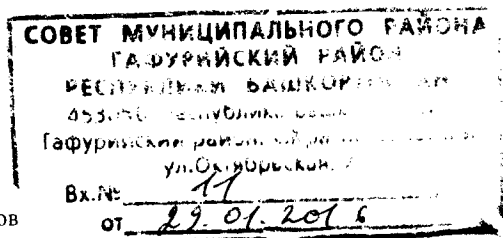 СОВЕТ МУНИЦИПАЛЬНОГО РАЙОНА
ГАФУРИЙСКИЙ РАЙОН
РЕСПУБЛИКИ БАШКОРТОСТАН
Гафурийский район
ул.Октябрьская,
Вх.№ 11
от 29.01.2016
ов